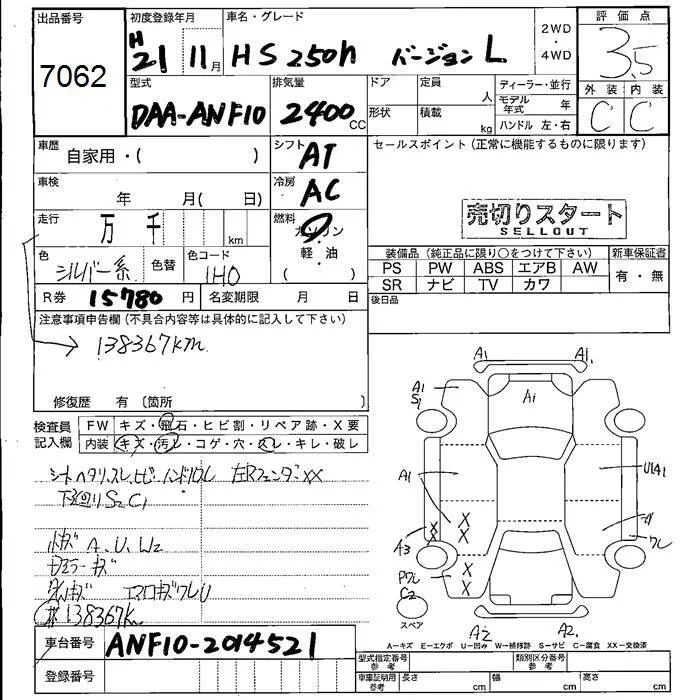 出品番号 初度登録年月 車名・グレード 2WD ・ 4WD 評価点
7062 H21 11月 HS250h バージョンL 3.5
型式 排気量 ドア 定員 人 ディーラー・並行 外装 内装
DAA-ANF10 2400cc 形状 積載 kg モデル年式 年 C C
ハンドル 左・右
車歴 自家用・( ) シフト AT セールスポイント(正常に機能するものに限ります)
車検 年 月( 日) 冷房 AC
売切りスタート
SELLOUT
走行 万 千 km 燃料 ガソリン・軽油 ( )
色 シルバー系 色替 色コード 1H0
装備品(純正品に限り○をつけて下さい) 新車保証書
PS PW ABS エアB AW 有・無
SR ナビ TV カワ
R券 15780円 名変期限 月 日 後日品
注意事項申告欄(不具合内容等は具体的に記入して下さい)
138367km
修復歴 有 〔箇所 〕
検査員記入欄 FW キズ・飛石・ヒビ割・リペア跡・X要
内装 キズ・汚れ・コゲ・穴・スレ・キレ・破レ
下廻りS2C1
A.U.W2
#138367km
A1 A1.
A1 S1 A1
A1 U1A1
A3
C2
スペア A2 A2.
A-キズ E-エクボ U-凹み W-補修跡 S-サビ C-腐食 XX-交換済
車台番号 ANF10-2014521
登録番号
型式指定番号 参考 類別区分番号 参考
車庫証明用 参考 長さ cm 幅 cm 高さ cm